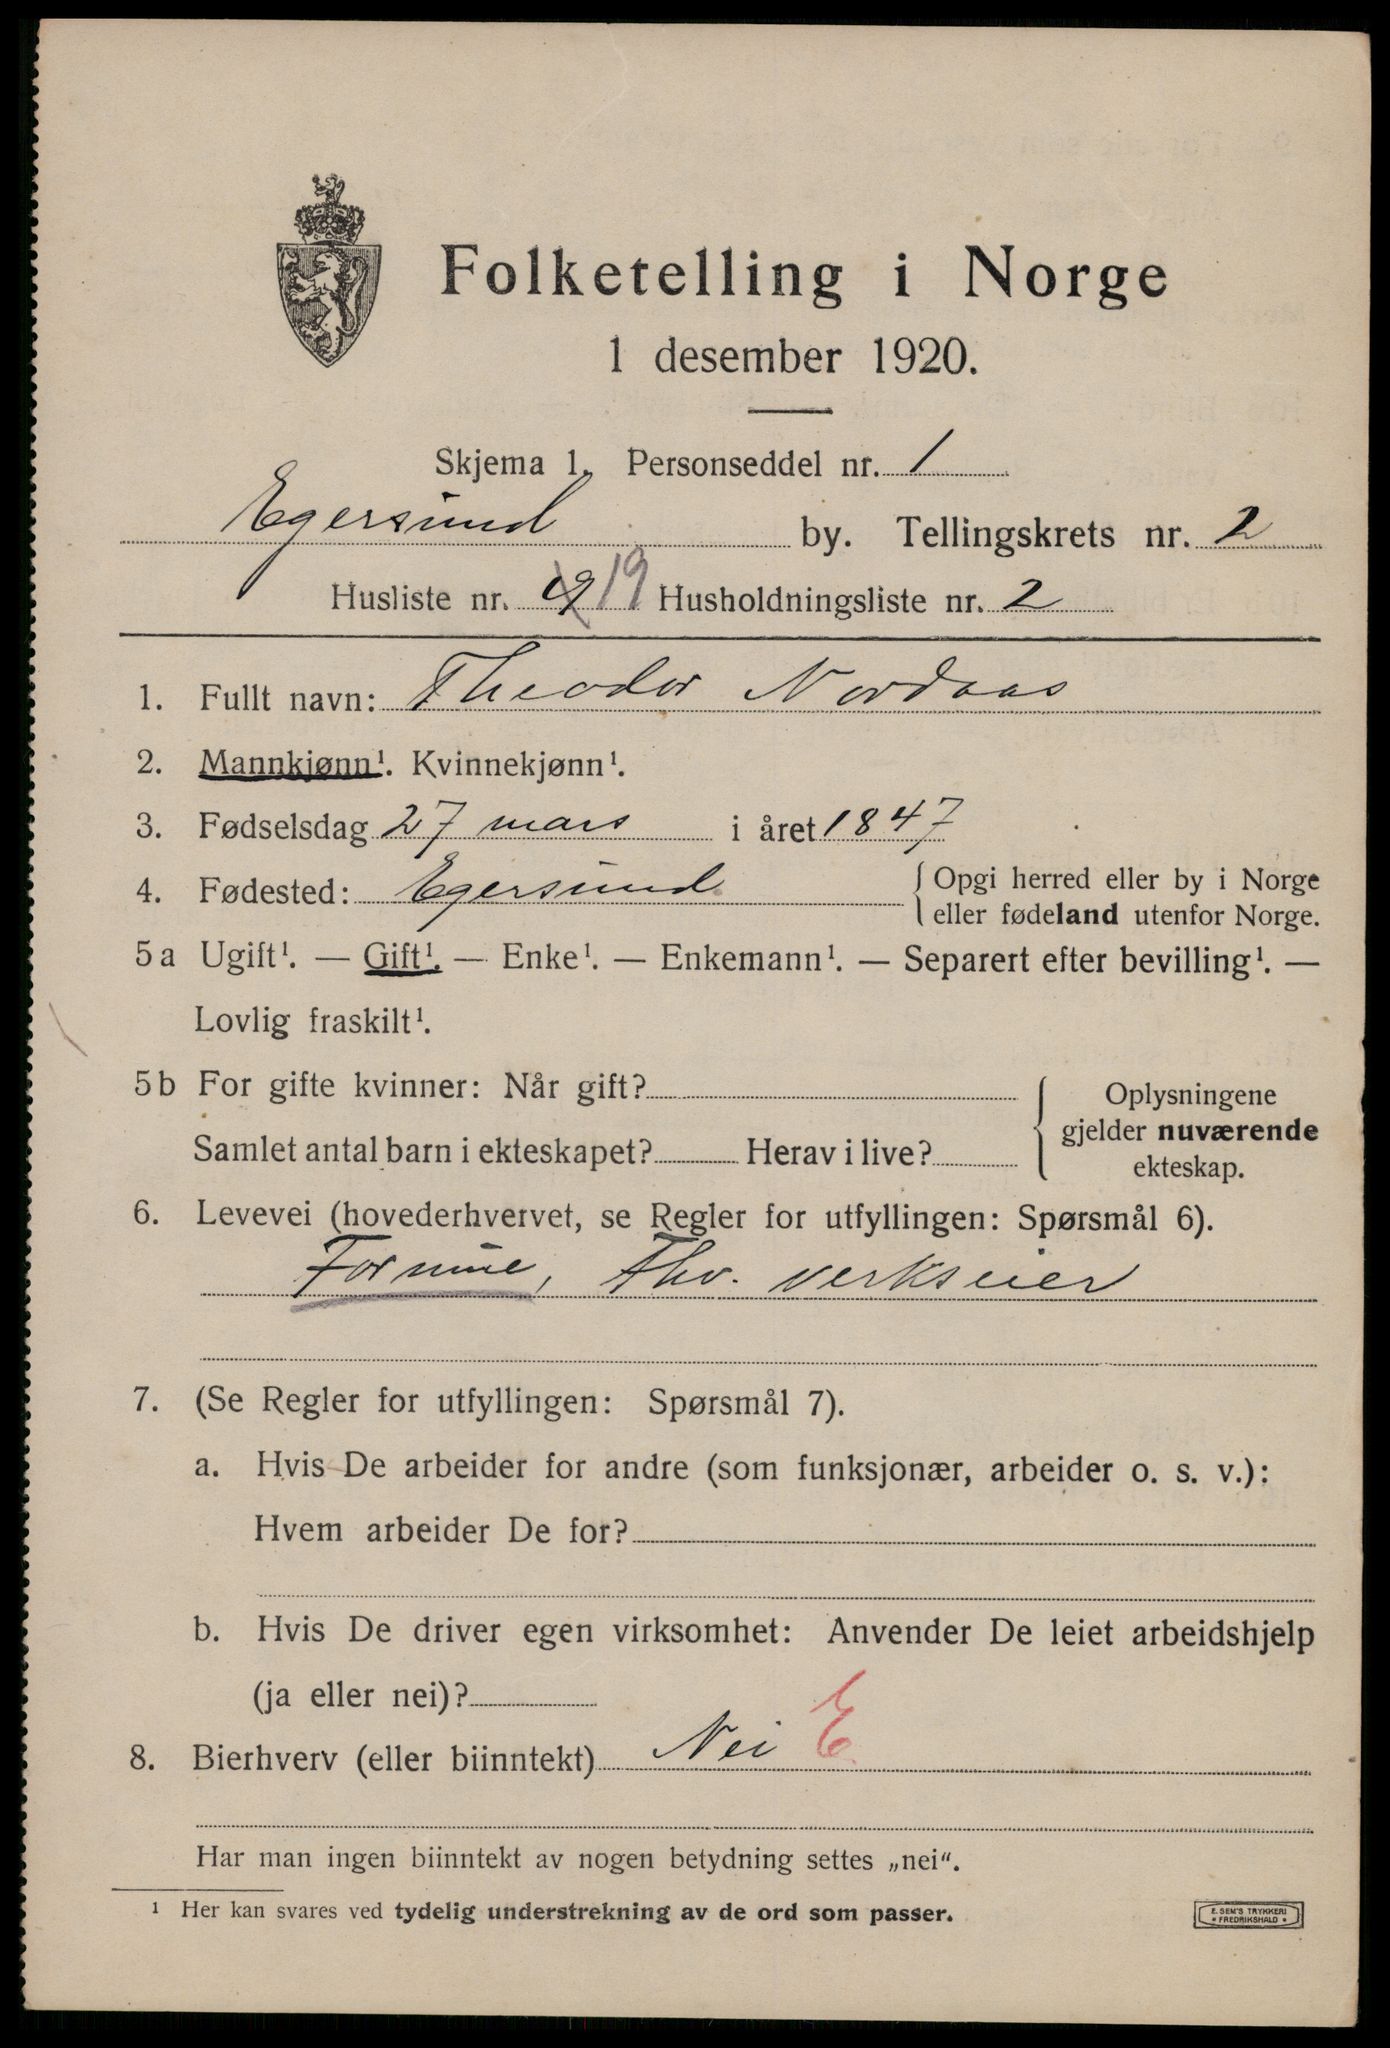 Folketelling i Norge
1 desember 1920.
Skjema 1. Personseddel nr. 1
Egersund by. Tellingskrets nr. 2
Husliste nr. 19 Husholdningsliste nr. 2
1. Fullt navn: Theodor Nordaas
2. Mannkjønn¹. Kvinnekjønn¹.
3. Fødselsdag 27 mars i året 1847
4. Fødested: Egersund { Opgi herred eller by i Norge
eller fødeland utenfor Norge.
5a Ugift¹. — Gift¹. — Enke¹. — Enkemann¹. — Separert efter bevilling¹. —
Lovlig fraskilt¹.
5b For gifte kvinner: Når gift?
Samlet antal barn i ekteskapet? Herav i live?
{ Oplysningene
gjelder nuværende
ekteskap.
6. Levevei (hovederhvervet, se Regler for utfyllingen: Spørsmål 6).
Formue, Fhv. verkseier
7. (Se Regler for utfyllingen: Spørsmål 7).
a. Hvis De arbeider for andre (som funksjonær, arbeider o. s. v.):
Hvem arbeider De for?
b. Hvis De driver egen virksomhet: Anvender De leiet arbeidshjelp
(ja eller nei)?
8. Bierhverv (eller biinntekt) Nei E
Har man ingen biinntekt av nogen betydning settes „nei“.
¹ Her kan svares ved tydelig understrekning av de ord som passer.
E. SEM'S TRYKKERI
* FREDRIKSHALD *